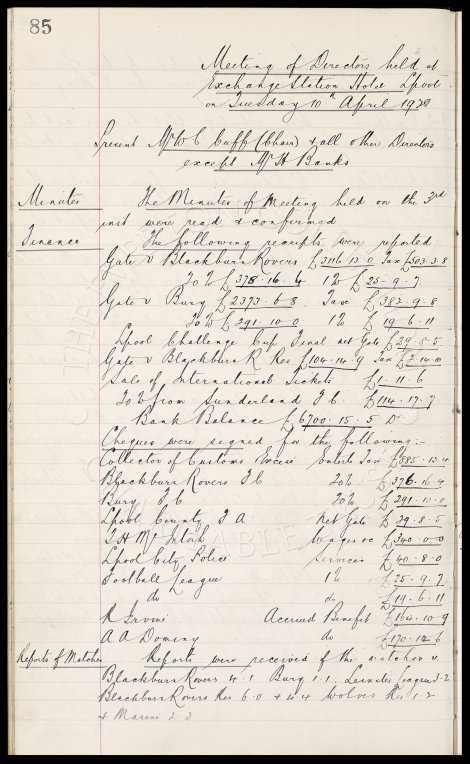 85
Meeting of Directors held at
Exchange Station Hotel Lpool
on Tuesday 10th April 1928
Present Mr W C Cuff (Chair) & all other Directors
except Mr H Banks
Minutes The Minutes of Meeting held on the 3rd
inst were read & confirmed
Finance The following receipts were reported
Gate v Blackburn Rovers £3116.13.0 Tax £503.3.8
20% £378.16.4. 1% £25.9.7
Gate v Bury £2373.0.8. Tax £382.9.8
20% £291.10.0 1% £19.6.11
Lpool Challenge Cup Final net Gate £29.8.5
Gate v Blackburn R Res £104.14.9 Tax £2.14.10
Sale of International Tickets £1.11.6
20% from Sunderland F C. £114.17.7
Bank Balance £6700.15.5 Dr
Cheques were signed for the following:-
Collector of Customs Excise Entert Tax £885.13.4
Blackburn Rovers F C 20% £376.16.4
Bury F C 20% £291.10.0
Lpool County F A Net Gate £29.8.5
T H McIntosh Wages &c £340.0.0
Lpool City Police Services £40.8.0
Football League 1% £25.9.7
do do £19.6.11
R Irvine Accrued Benefit £164.10.9
A A Dominy do £170.12.6
Reports of Matches Reports were received of the matches v.
Blackburn Rovers 4.1 Bury 1.1. Leinster League 3.2
Blackburn Rovers Res 6.0 & 4.4 Wolves Res 1.2
& Marine 2.3